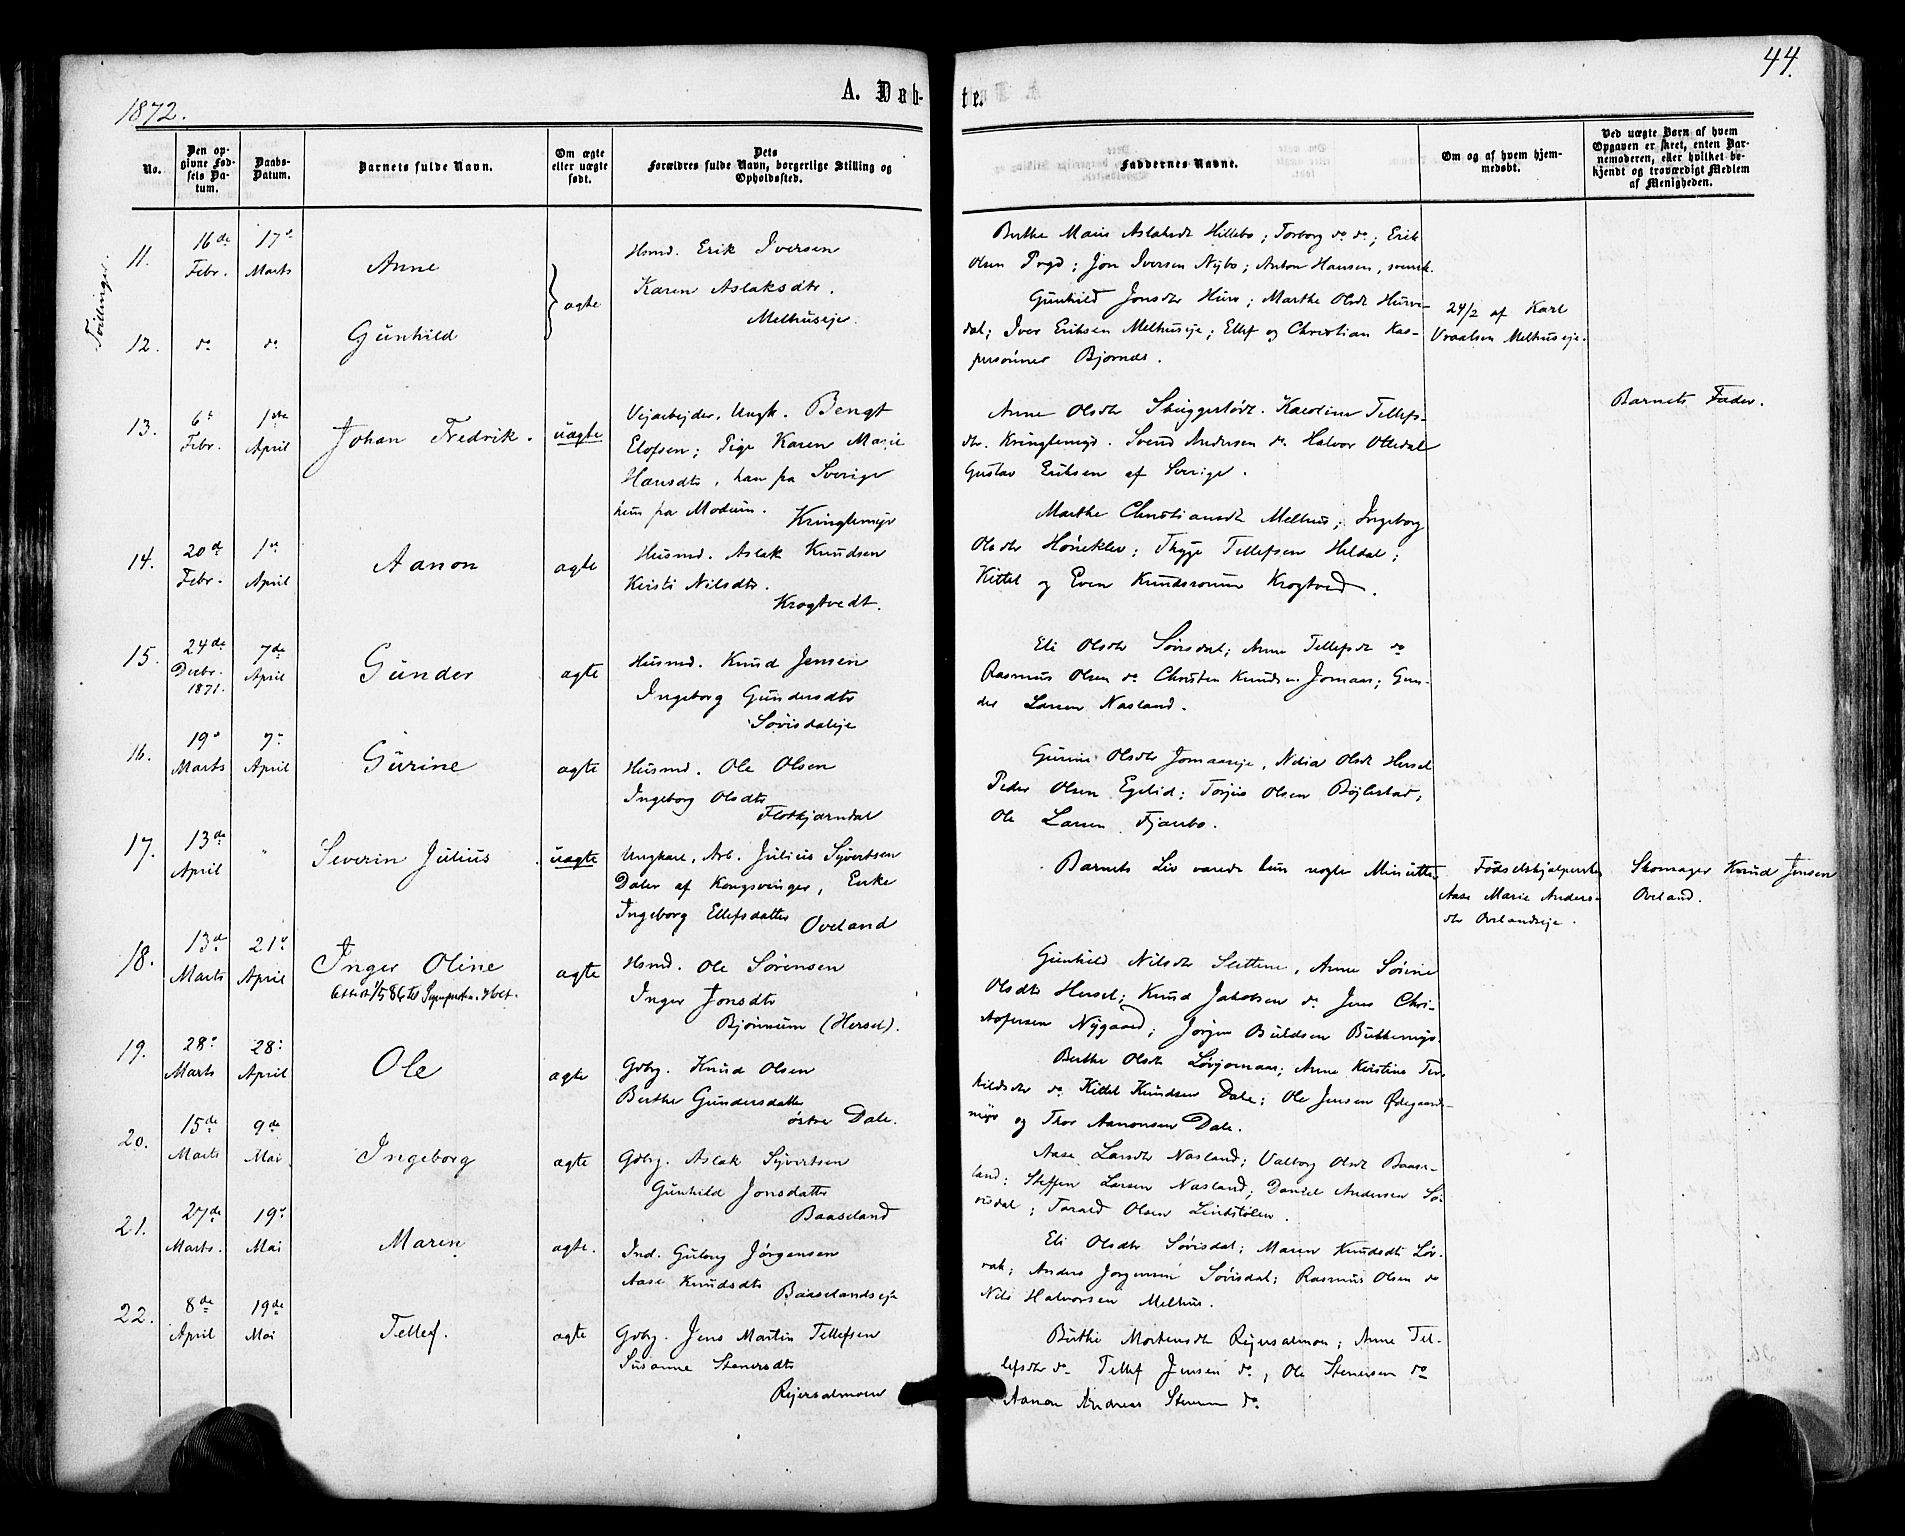 44.
1872.
A. Døb-te.
No.
Den opgivne Fødsels Datum.
Daabs-Datum.
Barnets fulde Navn.
Om ægte eller uægte født.
Dets Forældres fulde Navn, borgerlige Stilling og Opholdssted.
Faddernes Navne.
Om og af hvem hjemmedøbt.
Ved uægte Børn af hvem Opgaven er skeet, enten Barnemoderen, eller hvilket bekjendt og troværdigt Medlem af Menigheden.
Tvillinger.
11.
16de Febr.
17de Marts
Anne
ægte
Hsmd. Erik Iversen
Karen Aslaksdtr.
Melhuseje.
Berthe Marie Aslaksdt Hillebo; Torborg do do; Erik
Olsen ; Jon Iversen Nybo; Anton Hansen, svensk.
12.
do
do
Gunhild
Gunhild Jonsdtr Hurv; Marthe Olsdt Hurve-
dal; Iver Eriksen Melhuseje; Ellef og Christian Kas-
persønner Bjornes.
24/2 af Karl
Vraalsen Melhuseje.
13.
6te Febr.
1ste April
Johan Fredrik.
uægte
Vejarbejder, Ungk. Bengt
Elofsen; Pige Karen Marie
Hansdtr, han fra Sverige
hun fra Modum. Kringlemyr
Anne Olsdtr Skuggestødt. Karoline Tellefs-
dtr. Kringlemyr. Svend Andersen do Halvor Ottedal
Gustav Eriksen af Sverige.
Barnets Fader.
14.
20de Febr.
1ste April
Aanon
ægte
Husmd. Aslak Knudsen
Kirsti Nilsdtr.
Krogtvedt.
Marthe Christiansdt Melhus; Ingeborg
Olsdtr Hønekler; Thyge Tellefsen Heldal;
Kittel og Even Knudssønner Krogtved.
15.
24de Decbr. 1871.
7de April
Gunder
ægte
Husmd. Knud Jensen
Ingeborg Gundersdtr
Sørisdaleje
Eli Olsdtr Sørisdal; Anne Tellefsdt do
Rasmus Olsen do Christen Knudsen Jomaas; Gun-
der Larsen Nasland.
16.
19de Marts
7de April
Gurine
ægte
Husmd. Ole Olsen
Ingeborg Olsdtr
Flotkjærndal
Gurine Olsdtr Jomaaseje, Nelia Olsdt Hersel
Peder Olsen Egelid; Torjus Olsen Bøjlestad;
Ole Larsen Fjærbo.
17.
13de April
"
Severin Julius
uægte
Ungkarl, Arb. Julius Syvertsen
Daler af Kongsvinger, Enke
Ingeborg Ellefsdatter
Oveland
Barnets Liv varede kun nogle Minutter
Fødselshjælperske
Aase Marie Anders-
dtr Ovelandseje.
Skomager Knud Jensen
Oveland.
18.
13de Marts
21de April
Inger Oline
ægte
Hsmd. Ole Sørensen
Inger Jonsdtr
Bjønnum (Hersel).
Gunhild Nilsdtr Slettene, Anne Sørine
Olsdtr Hersel; Knud Jakobsen do Jens Chri-
stofersen Nygaard; Jørgen Buldsen Buttemyr.
19.
28de Marts
28de April
Ole
ægte
Gdbg. Knud Olsen
Berthe Gundersdatter
østre Dale.
Berthe Olsdt Løvjomaas; Anne Kirstine Ter-
kildsdtr do Kittel Knudsen Dale; Ole Jensen Ødegaards-
myr og Thor Aanonsen Dale.
20.
15de Marts
9de Mai
Ingeborg
ægte
Gdbg. Aslak Syvertsen
Gunhild Jonsdatter
Baaseland
Aase Larsdtr Nasland; Valborg Olsdt Baase-
land; Steffen Larsen Nasland; Daniel Andersen Sø-
risdal; Tarald Olsen Lindstølen.
21.
27de Marts.
19de Mai
Maren
ægte.
Ind. Gulbrg Jørgensen
Aase Knudsdtr
Baaselandseje
Eli Olsdtr Sørisdal; Maren Knudsdtr Løv-
rak; Anders Jørgensen Sørisdal; Rasmus Olsen do
Nils Halvorsen Melhus.
22.
8de April
19de Mai
Tellef.
ægte
Gdbg. Jens Martin Tellefsen
Susanne Stenersdtr
Rejersølmoen
Birthe Mortensdt Rejersølmoen; Anne Tel-
lefsdtr do Tellef Jensen do, Ole Stenersen do
Aanon Andreas Stenersen do